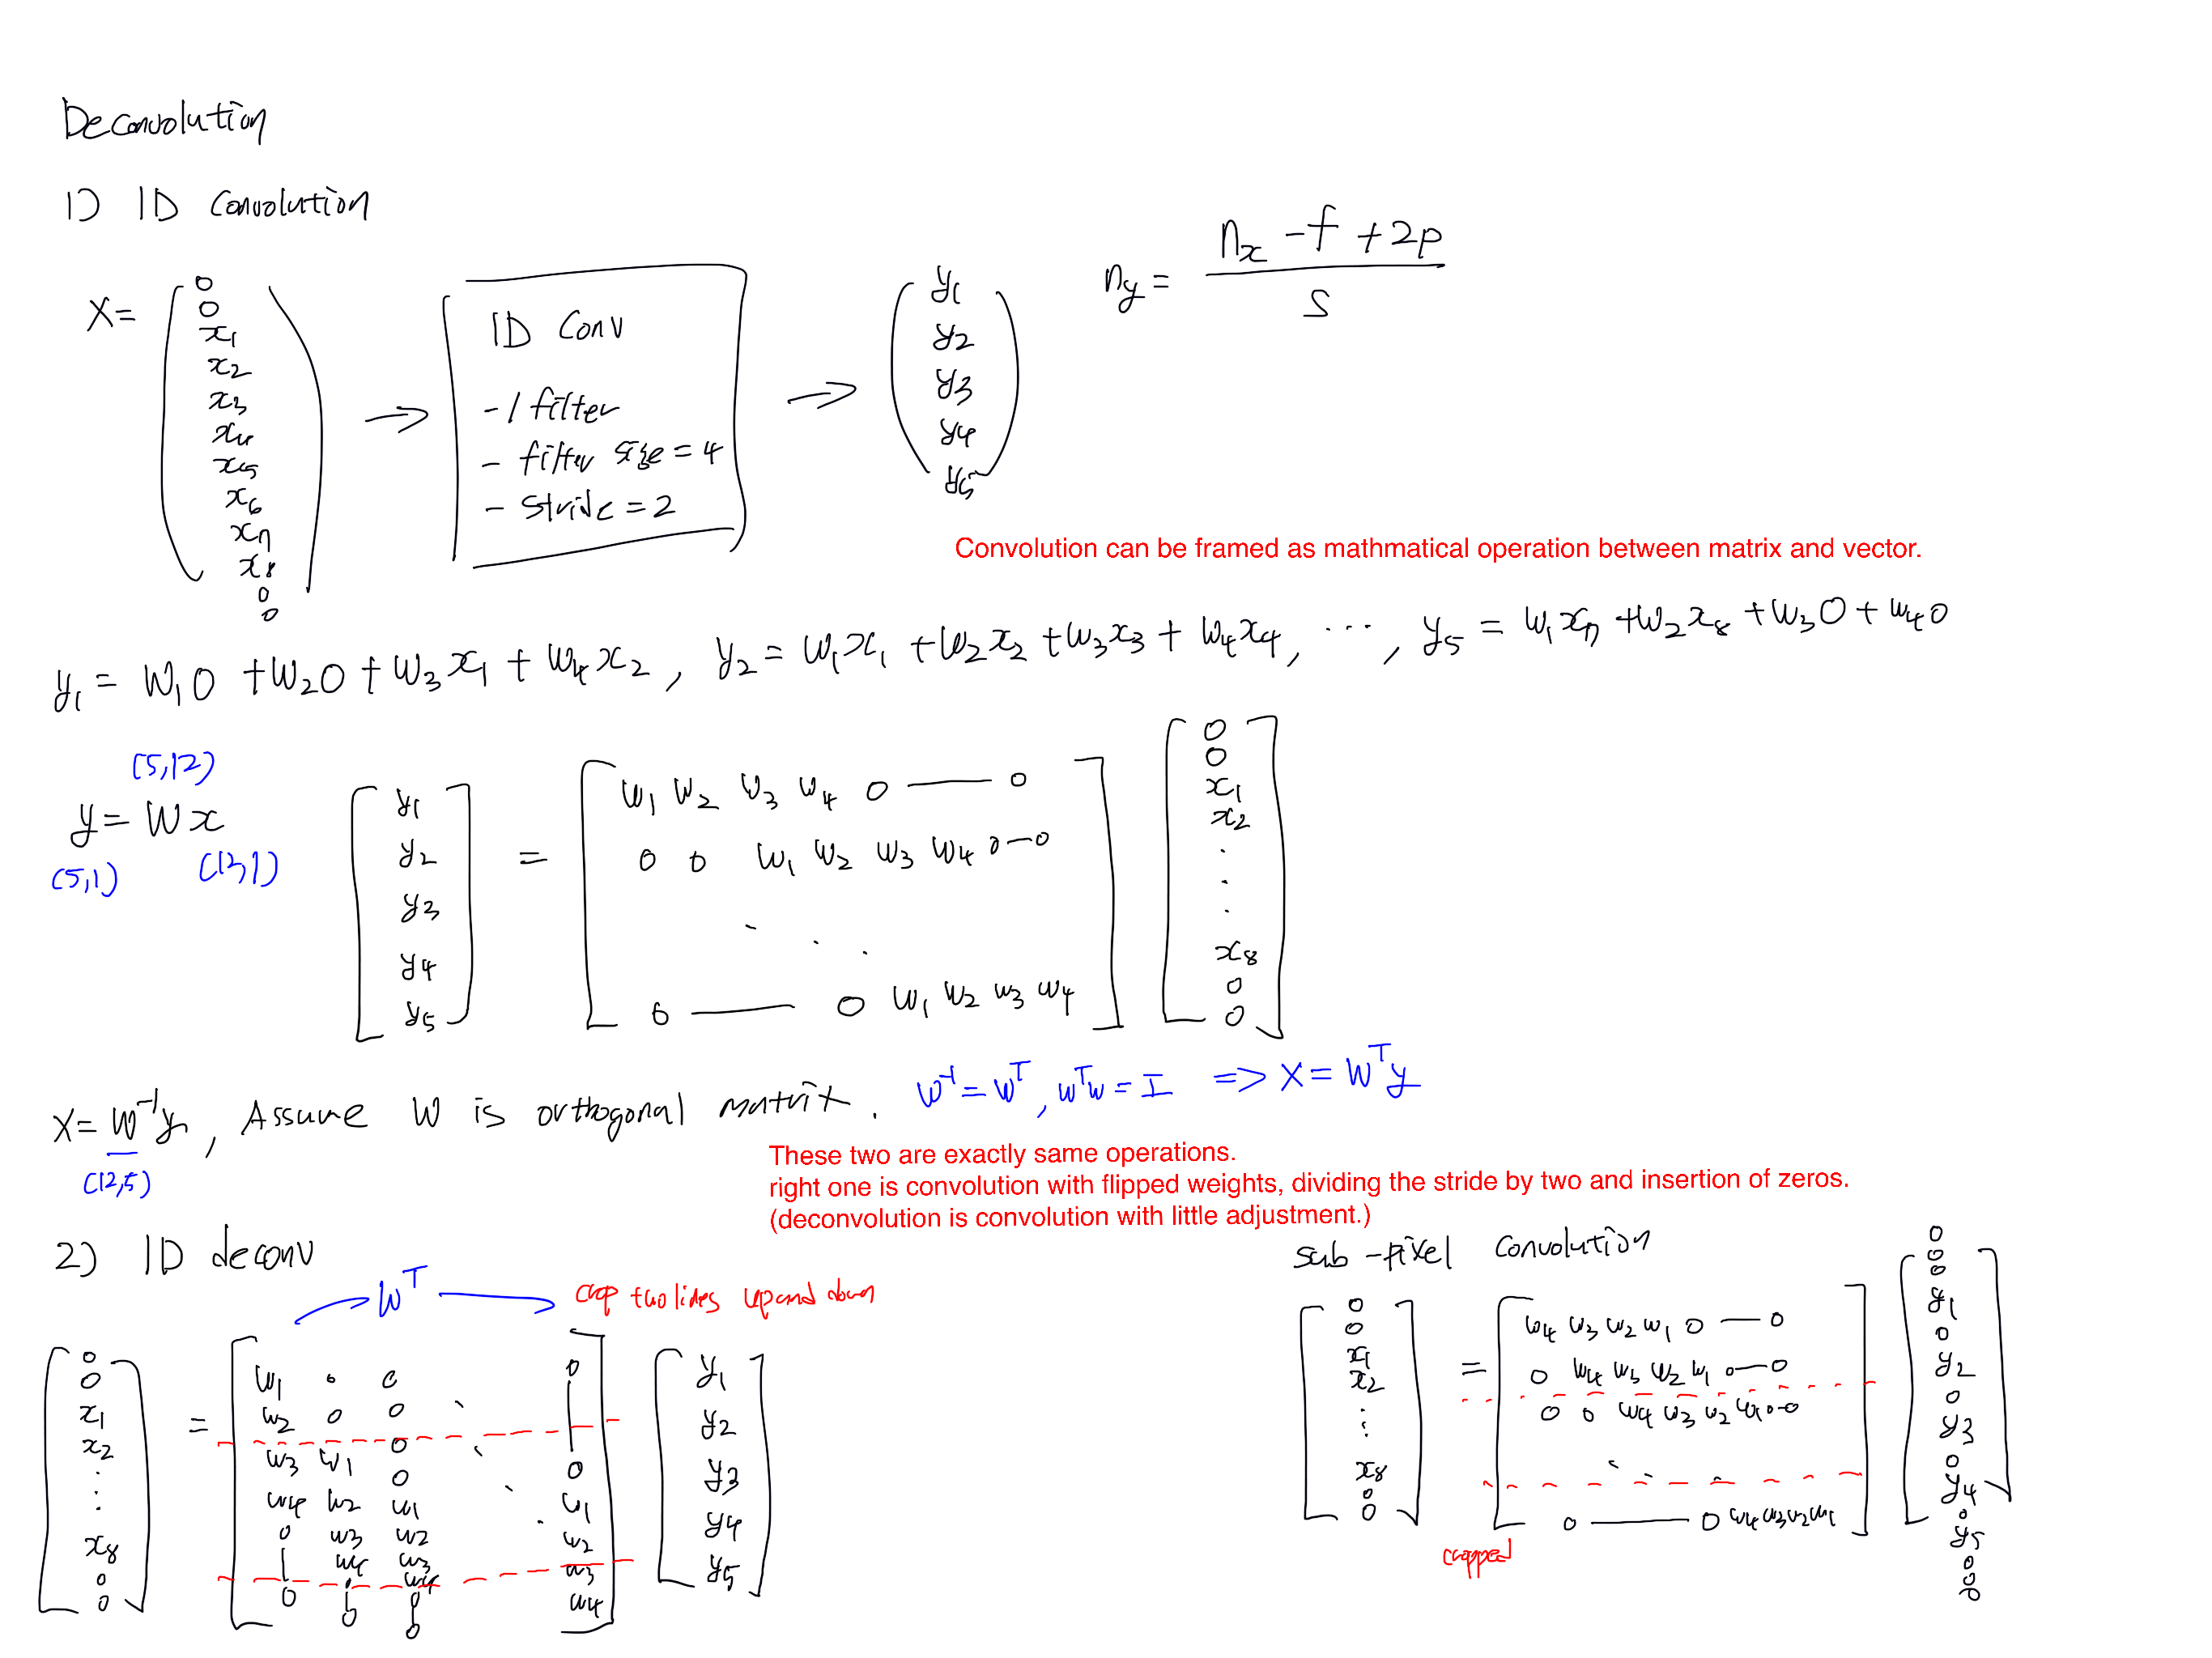 Deconvolution
1) 1D convolution
X = ( 0 0 x1 x2 x3 x4 x5 x6 x7 x8 0 0 ) → [ 1D Conv
- 1 filter
- filter size = 4
- stride = 2 ] → ( y1 y2 y3 y4 y5 )
ny = (nx - f + 2p) / s
Convolution can be framed as mathmatical operation between matrix and vector.
y1 = w1 0 + w2 0 + w3 x1 + w4 x2 , y2 = w1 x1 + w2 x2 + w3 x3 + w4 x4 , ... , y5 = w1 x7 + w2 x8 + w3 0 + w4 0
(5,12)
y = W x
(5,1) (12,1)
[ y1 y2 y3 y4 y5 ] =
[ w1 w2 w3 w4 0 — 0
0 0 w1 w2 w3 w4 0 — 0
. . .
0 — 0 w1 w2 w3 w4 ]
[ 0 0 x1 x2 . . . x8 0 0 ]
X = W⁻¹y , Assume W is orthogonal matrix. W⁻¹ = Wᵀ , WᵀW = I => X = Wᵀy
(12,5)
These two are exactly same operations.
right one is convolution with flipped weights, dividing the stride by two and insertion of zeros.
(deconvolution is convolution with little adjustment.)
2) 1D deconv
Wᵀ
crop two lides up and down
[ 0 0 x1 x2 : : x8 0 0 ] =
[ w1 0 0 0
w2 0 0
w3 w1 0
w4 w2 w1 0 w1
0 w3 w2 w2
w4 w3 w3
0 0 w4 0 w4 ]
[ y1 y2 y3 y4 y5 ]
sub-pixel convolution
[ 0 0 x1 x2 : x8 0 0 ] =
[ w4 w3 w2 w1 0 — 0
0 w4 w3 w2 w1 0 — 0
0 0 w4 w3 w2 w1 0 - 0
0 — 0 w4 w3 w2 w1 ]
[ 0 0 0 y1 0 y2 0 y3 0 y4 0 y5 0 0 0 ]
cropped